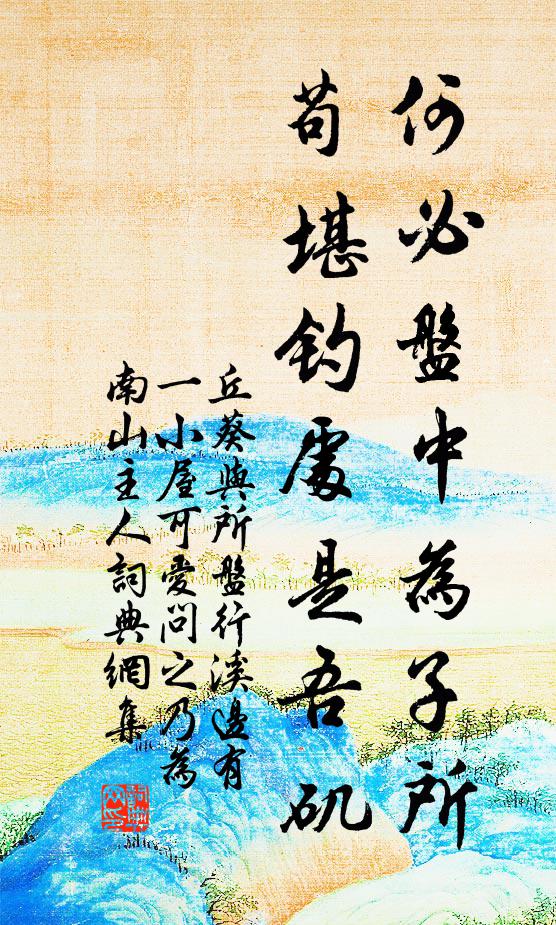 何必盤中為子所
苟堪釣處是吾矶
丘葵與所盤行溪邊有
一小屋可愛問之乃為
南山主人詞典網集